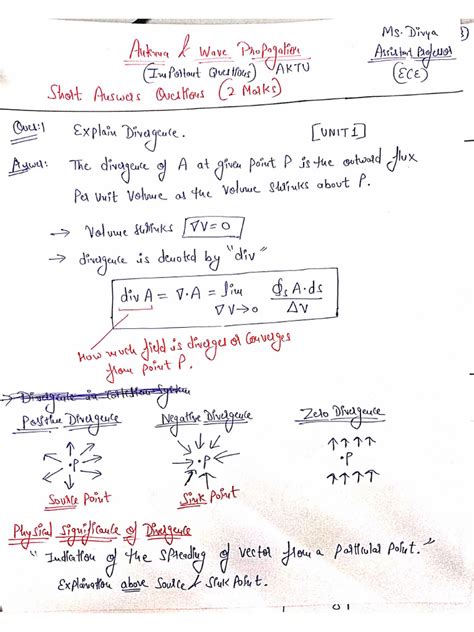 Antenna & Wave Propogation
Ms. Divya
(Important Questions) AKTU
Assistant Professor
(ECE)
Short Answers Questions (2 Marks)
Ques:1 Explain Divergence. [UNIT 1]
Answer: The divergence of A at given point P is the outward flux
Per Unit Volume as the Volume shrinks about P.
→ Volume shrinks ∇V=0
→ divergence is denoted by "div"
div A = ∇·A = lim ∇V→0 ∮s A·ds / ΔV
How much field is diverges or Converges
from point P.
→ Divergence in Cartesian System
Positive Divergence Negative Divergence Zero Divergence
·P ·P ·P
Source Point Sink Point
Physical Significance of Divergence
"Indication of the Spreading of vector from a Particular Point."
Explanation above Source & Sink Point.